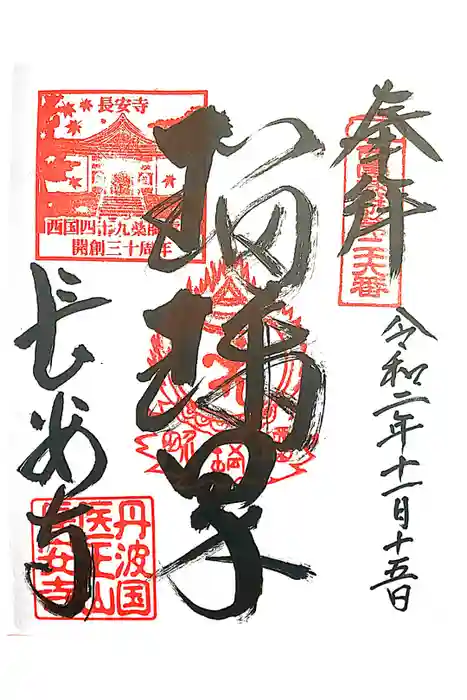 奉拝
令和二年十一月十五日
瑠璃
長安寺
西国四十九薬師
開創三十周年
長安寺
丹波国
医王山
長安寺